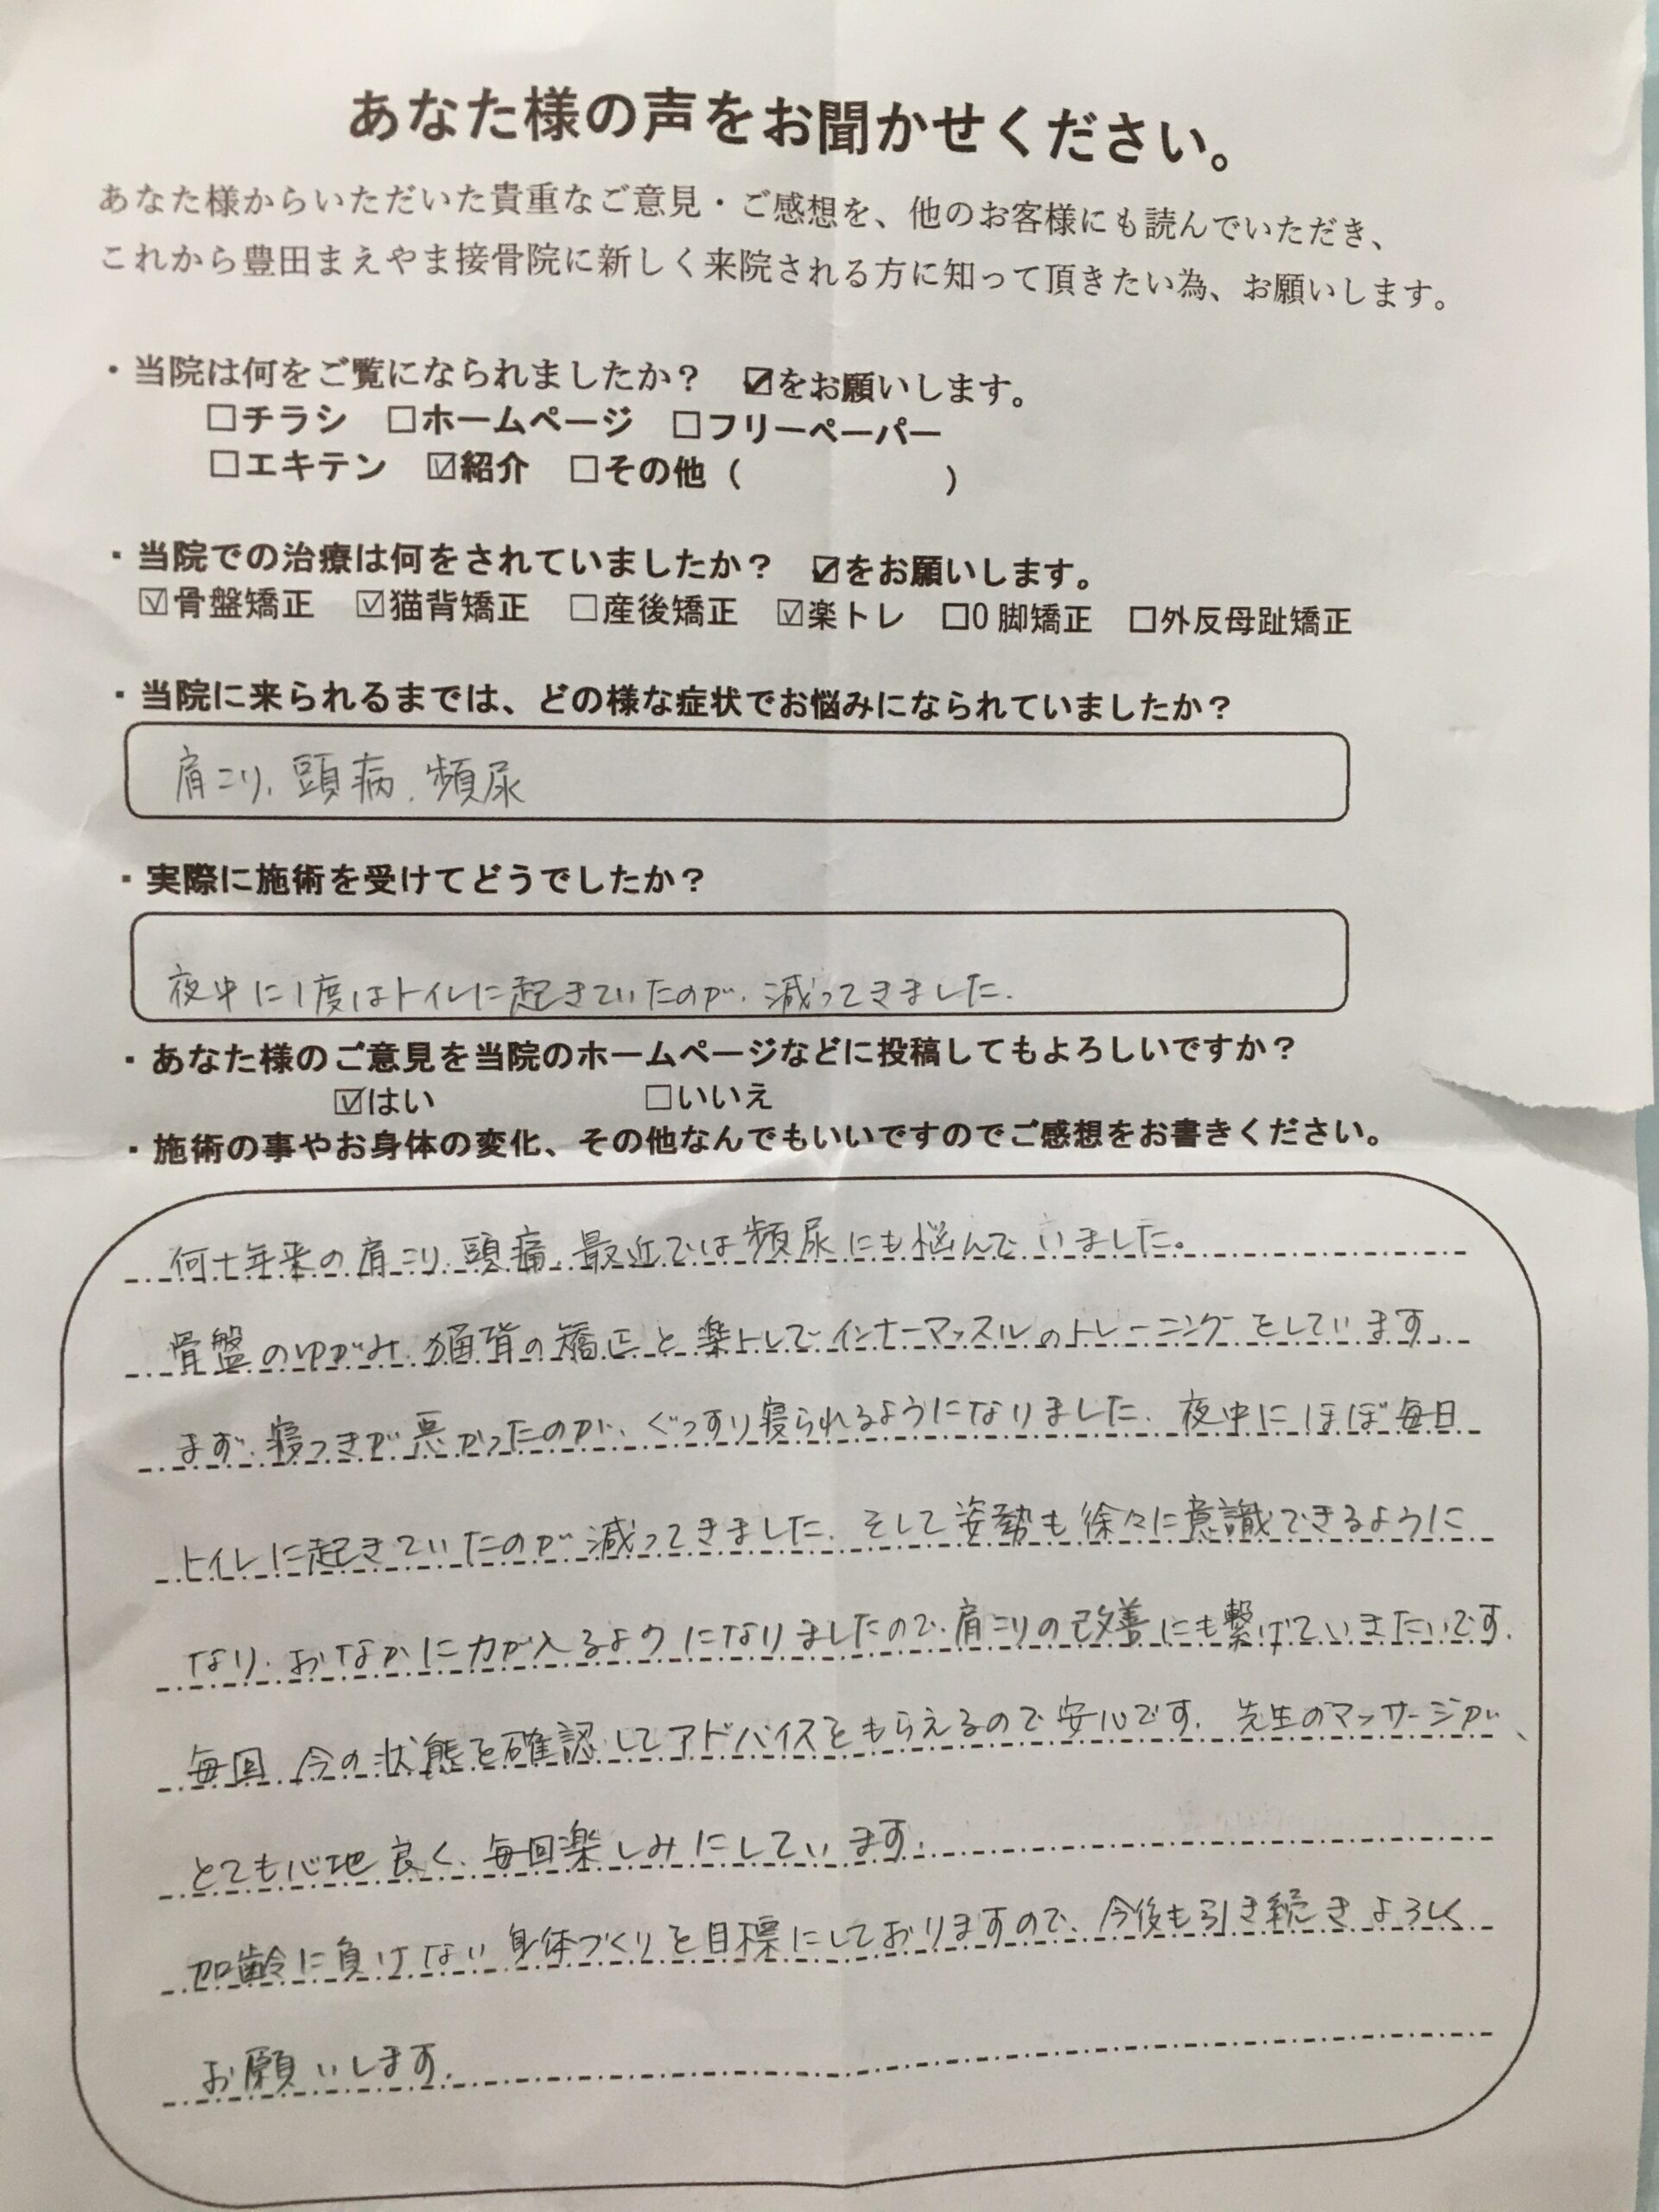 あなた様の声をお聞かせください。
あなた様からいただいた貴重なご意見・ご感想を、他のお客様にも読んでいただき、
これから豊田まえやま接骨院に新しく来院される方に知って頂きたい為、お願いします。
・当院は何をご覧になられましたか？ ☑をお願いします。
□チラシ □ホームページ □フリーペーパー
□エキテン ☑紹介 □その他（ ）
・当院での治療は何をされていましたか？ ☑をお願いします。
☑骨盤矯正 ☑猫背矯正 □産後矯正 ☑楽トレ □O脚矯正 □外反母趾矯正
・当院に来られるまでは、どの様な症状でお悩みになられていましたか？
肩こり、頭病、頻尿
・実際に施術を受けてどうでしたか？
夜中に1度はトイレに起きていたのが、減ってきました。
・あなた様のご意見を当院のホームページなどに投稿してもよろしいですか？
☑はい □いいえ
・施術の事やお身体の変化、その他なんでもいいですのでご感想をお書きください。
何十年来の肩こり、頭痛、最近では頻尿にも悩んでいました。
骨盤のゆがみ、猫背の矯正と楽トレでインナーマッスルのトレーニングをしています。
まず、寝つきが悪かったのが、ぐっすり寝られるようになりました。夜中にほぼ毎日
トイレに起きていたのが減ってきました。そして姿勢も徐々に意識できるように
なり、おなかに力が入るようになりましたので、肩こりの改善にも繋げていきたいです。
毎回、今の状態を確認してアドバイスをもらえるので安心です。先生のマッサージが、
とても心地良く、毎回楽しみにしています。
加齢に負けない身体づくりを目標にしておりますので、今後も引き続きよろしく
お願いします。